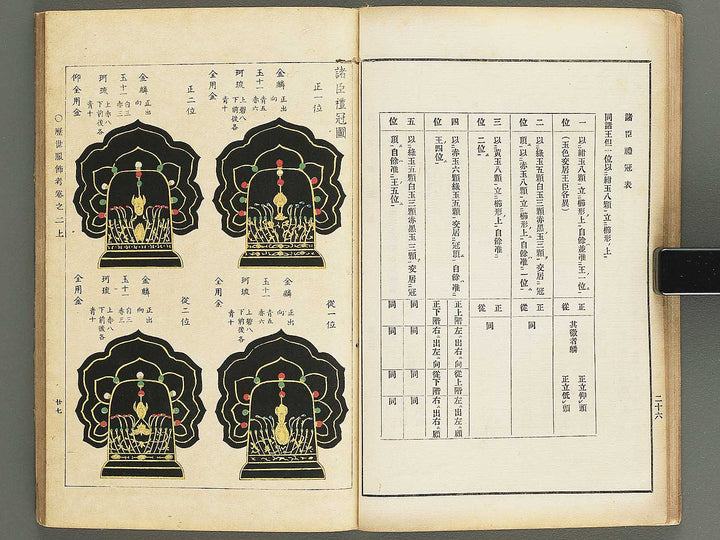 諸臣禮冠表
同諸王但一位以紺玉八顆立櫛形上
一位
以紺玉八顆立櫛形上自餘並准王一位
(玉色交居王臣各異)
正
從
其徽者麟
正立仰頭
正立低頭
二位
以綠玉五顆白玉三顆赤黑玉三顆交居冠
頂以赤玉八顆立櫛形上自餘准一位
正
從
同
三位
以黃玉八顆立櫛形上自餘准
二位
正
從
同
四位
以赤玉六顆綠玉五顆交居冠頂自餘准
王四位
正上階左出右向
正下階右出左向
從上階左出左顧
從下階右出右顧
五位
以綠玉五顆白玉三顆赤黑玉三顆交居冠
頂自餘准王五位
同
同
同
同
同
同
二十六
諸臣禮冠圖
正一位
金麟 正出向
玉十一 青五赤六
珂琉 上碧八下前後各青十
全用金
正二位
金麟 正出向
玉十一 白三赤三
珂琉 上赤八下前後各青十
仰全用金
從一位
金麟 正出向
玉十一 青五赤六
珂琉 上碧八下前後各青十
全用金
從二位
金麟 正出向
玉十一 白三赤三
珂琉 上赤八下前後各青十
全用金
○歷世服飾考卷之二上
廿七